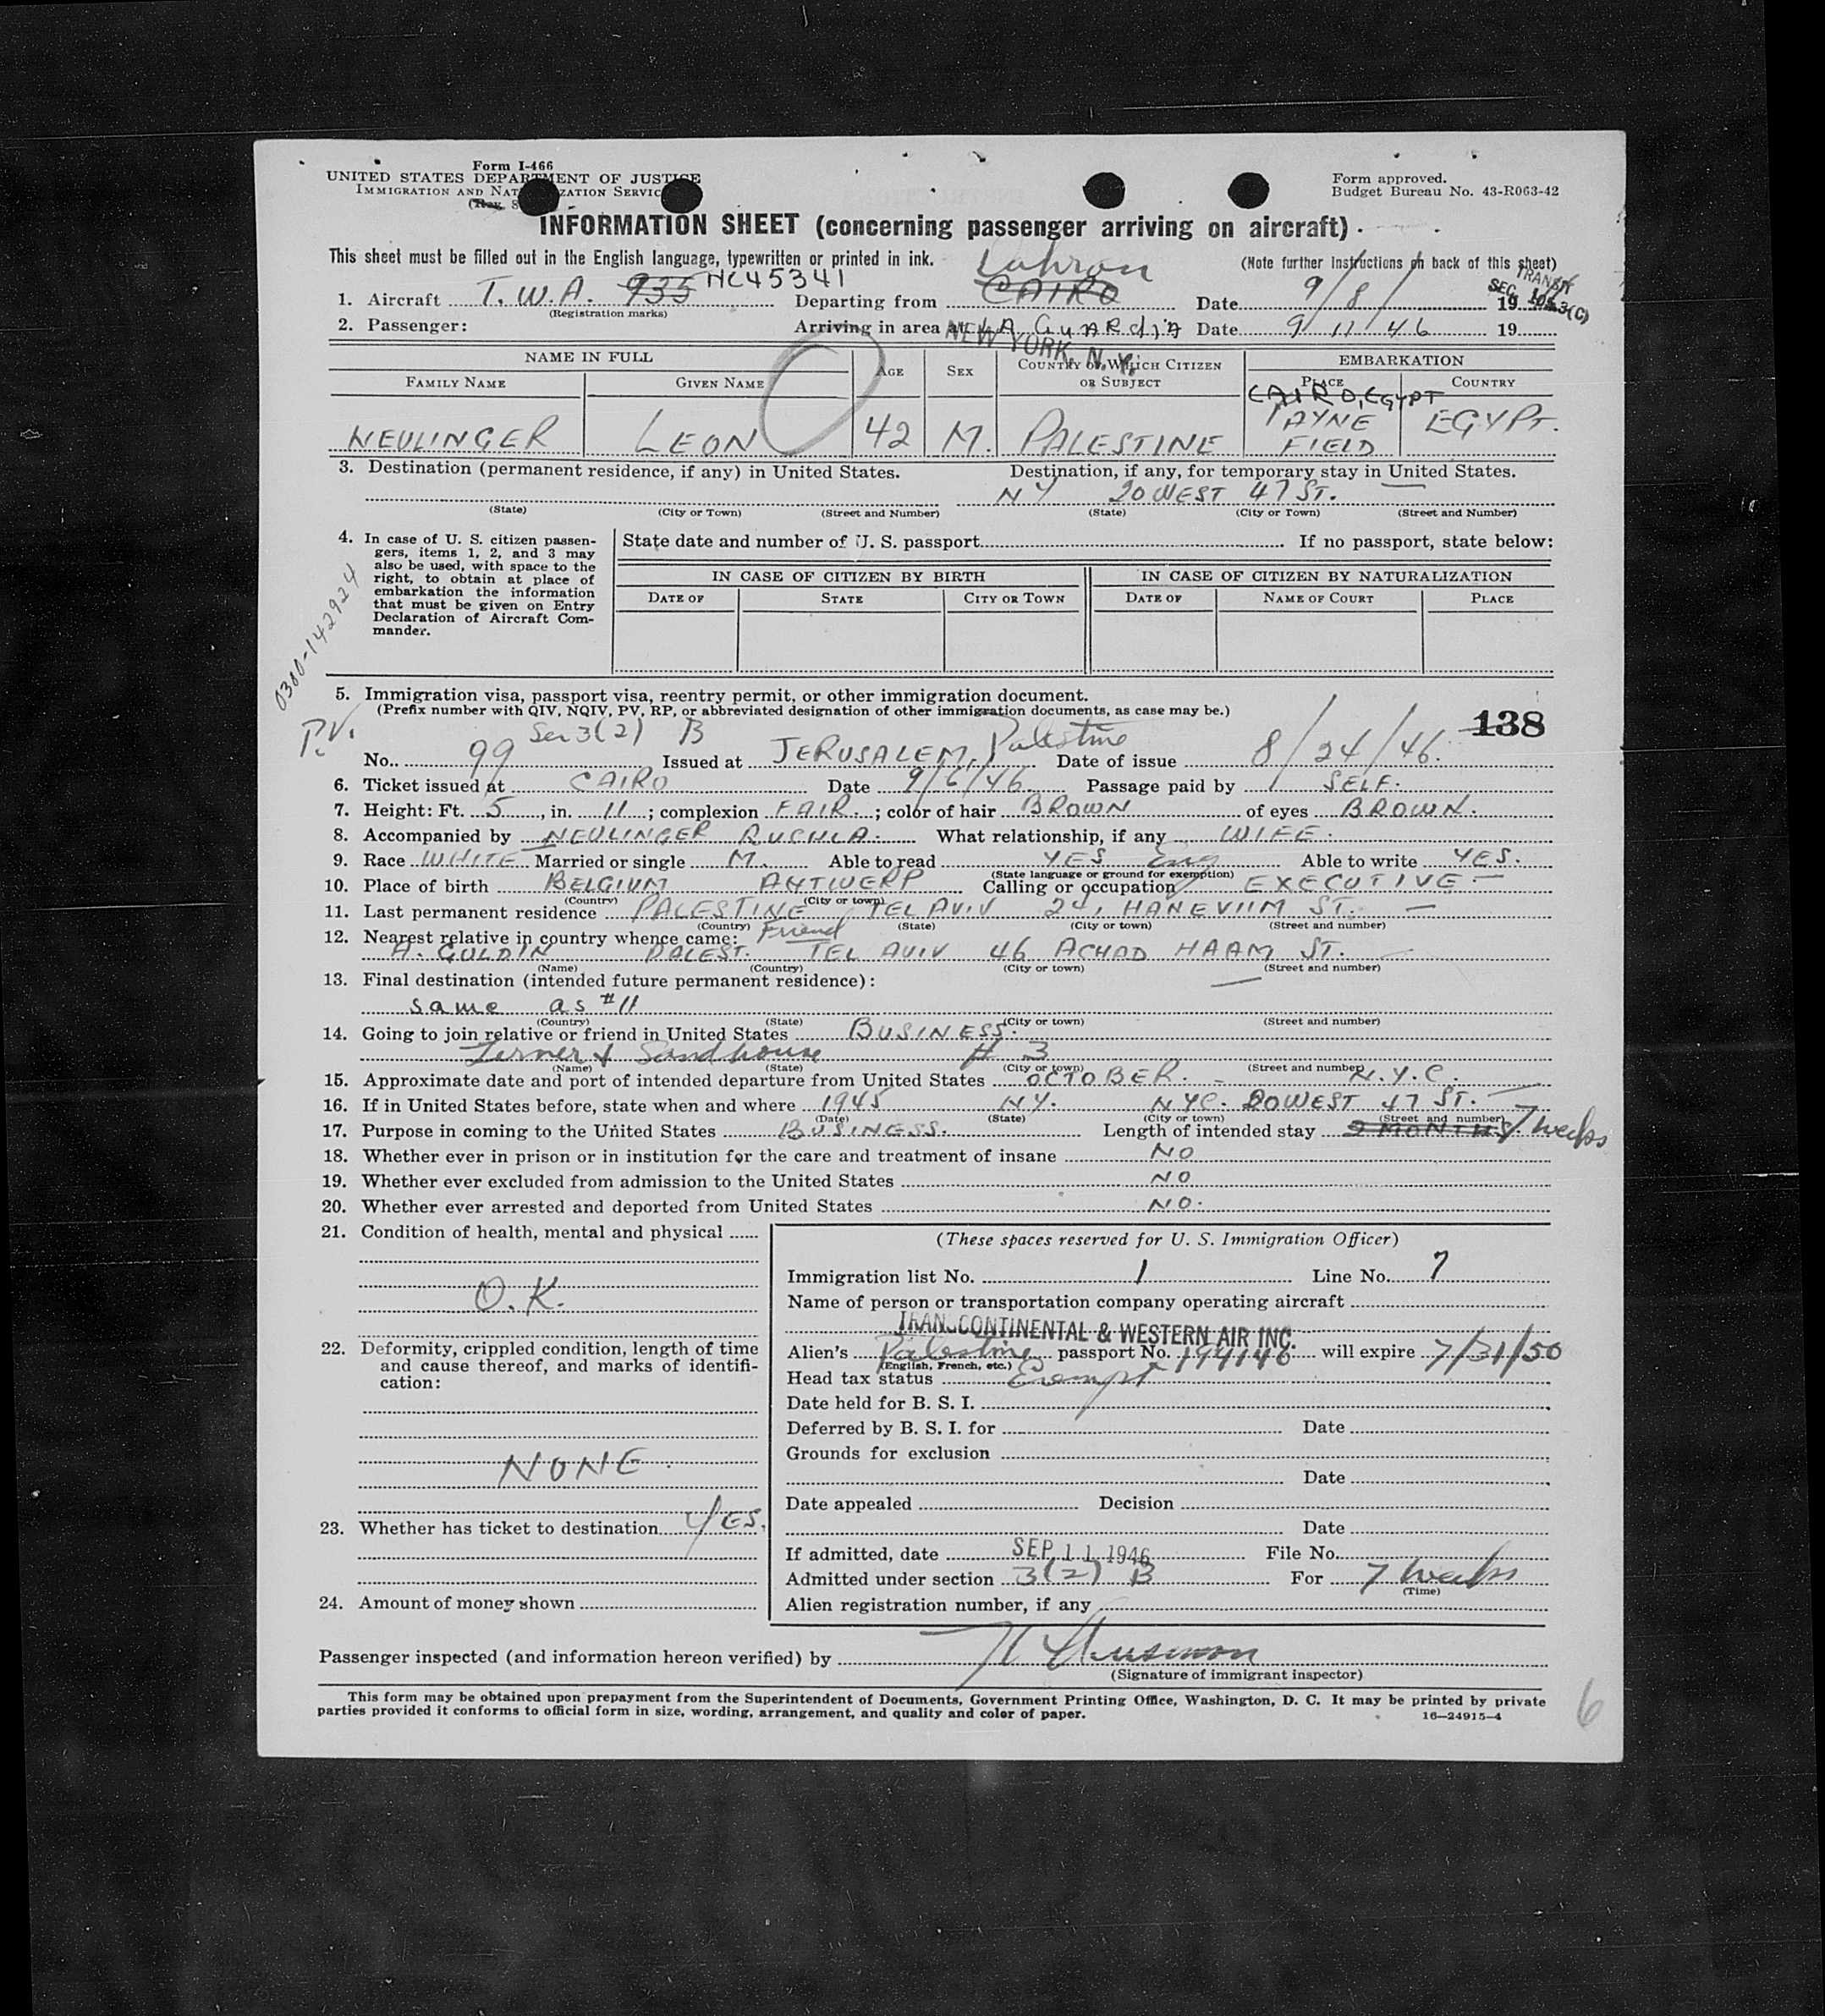 Form I-466
UNITED STATES DEPARTMENT OF JUSTICE
IMMIGRATION AND NAT ZATION SERVIC
Form approved.
Budget Bureau No. 43-R063-42
INFORMATION SHEET (concerning passenger arriving on aircraft)
This sheet must be filled out in the English language, typewritten or printed in ink.
(Note further instructions on back of this sheet)
TRANSIT
SEC.
3(C)
1. Aircraft T.W.A. 935 NC45341 Departing from CAIRO Date 9/8/ 19
(Registration marks)
2. Passenger: Arriving in area at LA GUARDIA Date 9 11 46 19
NEW YORK, N.Y.
NAME IN FULL AGE SEX COUNTRY OF WHICH CITIZEN OR SUBJECT EMBARKATION
FAMILY NAME GIVEN NAME PLACE COUNTRY
CAIRO, EGYPT
NEULINGER LEON 42 M. PALESTINE PAYNE FIELD EGYPT.
3. Destination (permanent residence, if any) in United States. Destination, if any, for temporary stay in United States.
NY 20 WEST 47 ST.
(State) (City or Town) (Street and Number) (State) (City or Town) (Street and Number)
4. In case of U. S. citizen passengers, items 1, 2, and 3 may also be used, with space to the right, to obtain at place of embarkation the information that must be given on Entry Declaration of Aircraft Commander.
State date and number of U. S. passport If no passport, state below:
IN CASE OF CITIZEN BY BIRTH IN CASE OF CITIZEN BY NATURALIZATION
DATE OF STATE CITY OR TOWN DATE OF NAME OF COURT PLACE
0300-142924
5. Immigration visa, passport visa, reentry permit, or other immigration document.
(Prefix number with QIV, NQIV, PV, RP, or abbreviated designation of other immigration documents, as case may be.)
138
P.V.
Sec 3(2) B
No. 99 Issued at JERUSALEM, Palestine Date of issue 8/24/46.
6. Ticket issued at CAIRO Date 9/6/46 Passage paid by SELF.
7. Height: Ft. 5, in. 11; complexion FAIR.; color of hair BROWN of eyes BROWN.
8. Accompanied by NEULINGER RUCHLA. What relationship, if any WIFE.
9. Race WHITE Married or single M. Able to read YES Eng Able to write YES.
(State language or ground for exemption)
10. Place of birth BELGIUM ANTWERP Calling or occupation EXECUTIVE
(Country) (City or town)
11. Last permanent residence PALESTINE TEL AVIV 24, HANEVIIM ST.
(Country) (State) (City or town) (Street and number)
12. Nearest relative in country whence came: Friend
A. GULDIN PALEST. TEL AVIV 46 ACHAD HAAM ST.
(Name) (Country) (City or town) (Street and number)
13. Final destination (intended future permanent residence):
same as #11
(Country) (State) (City or town) (Street and number)
14. Going to join relative or friend in United States BUSINESS.
Lerner & Sandhouse # 3
(Name) (State) (City or town) (Street and number)
15. Approximate date and port of intended departure from United States OCTOBER. - N.Y.C.
16. If in United States before, state when and where 1945 NY. NYC. 20 WEST 47 ST.
(Date) (State) (City or town) (Street and number)
17. Purpose in coming to the United States BUSINESS. Length of intended stay 2 MONTHS 7 weeks
18. Whether ever in prison or in institution for the care and treatment of insane NO
19. Whether ever excluded from admission to the United States NO
20. Whether ever arrested and deported from United States NO.
21. Condition of health, mental and physical
O.K.
22. Deformity, crippled condition, length of time and cause thereof, and marks of identification:
NONE.
23. Whether has ticket to destination YES.
24. Amount of money shown
(These spaces reserved for U. S. Immigration Officer)
Immigration list No. 1 Line No. 7
Name of person or transportation company operating aircraft
TRANSCONTINENTAL & WESTERN AIR INC.
Alien's Palestine passport No. 199146 will expire 7/31/50
(English, French, etc.)
Head tax status Exempt
Date held for B. S. I.
Deferred by B. S. I. for Date
Grounds for exclusion
Date
Date appealed Decision
Date
If admitted, date SEP 11 1946 File No.
Admitted under section 3(2) B For 7 weeks
(Time)
Alien registration number, if any
Passenger inspected (and information hereon verified) by
(Signature of immigrant inspector)
This form may be obtained upon prepayment from the Superintendent of Documents, Government Printing Office, Washington, D. C. It may be printed by private
parties provided it conforms to official form in size, wording, arrangement, and quality and color of paper.
16—24915-4
6